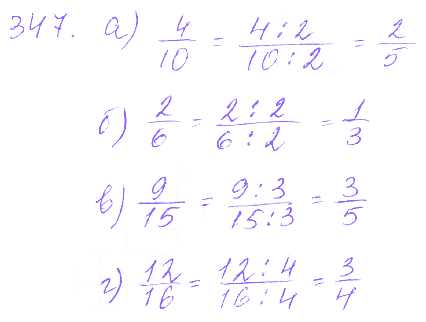 347. а) 4/10 = 4:2/10:2 = 2/5
б) 2/6 = 2:2/6:2 = 1/3
в) 9/15 = 9:3/15:3 = 3/5
г) 12/16 = 12:4/16:4 = 3/4